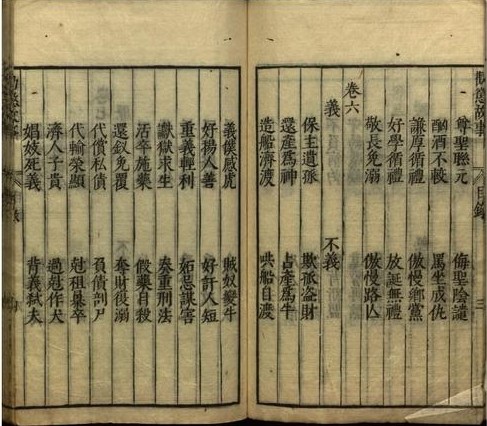 勸懲故事 目錄 三
尊聖聯元 侮聖陰譴
酗酒不較 罵坐成
謙厚循禮 傲慢鄉黨
好學循禮 放誕無禮
敬長免溺 傲慢路亾
卷六
義 不義
保主遺孤 欺孤盜財
還產爲神 占產爲牛
造船濟渡 哄船自渡
義僕感虎 賊奴變牛
好揚人善 好訐人短
重義輕利 妬忌謀害
讞獄求生 奏重刑法
活卒施藥 假藥自殺
還釵免覆 奪財復溺
代償私債 負債剖尸
代輸榮顯 尅租暴卒
濟人子貴 過尅作犬
娼妓死義 背義弒夫